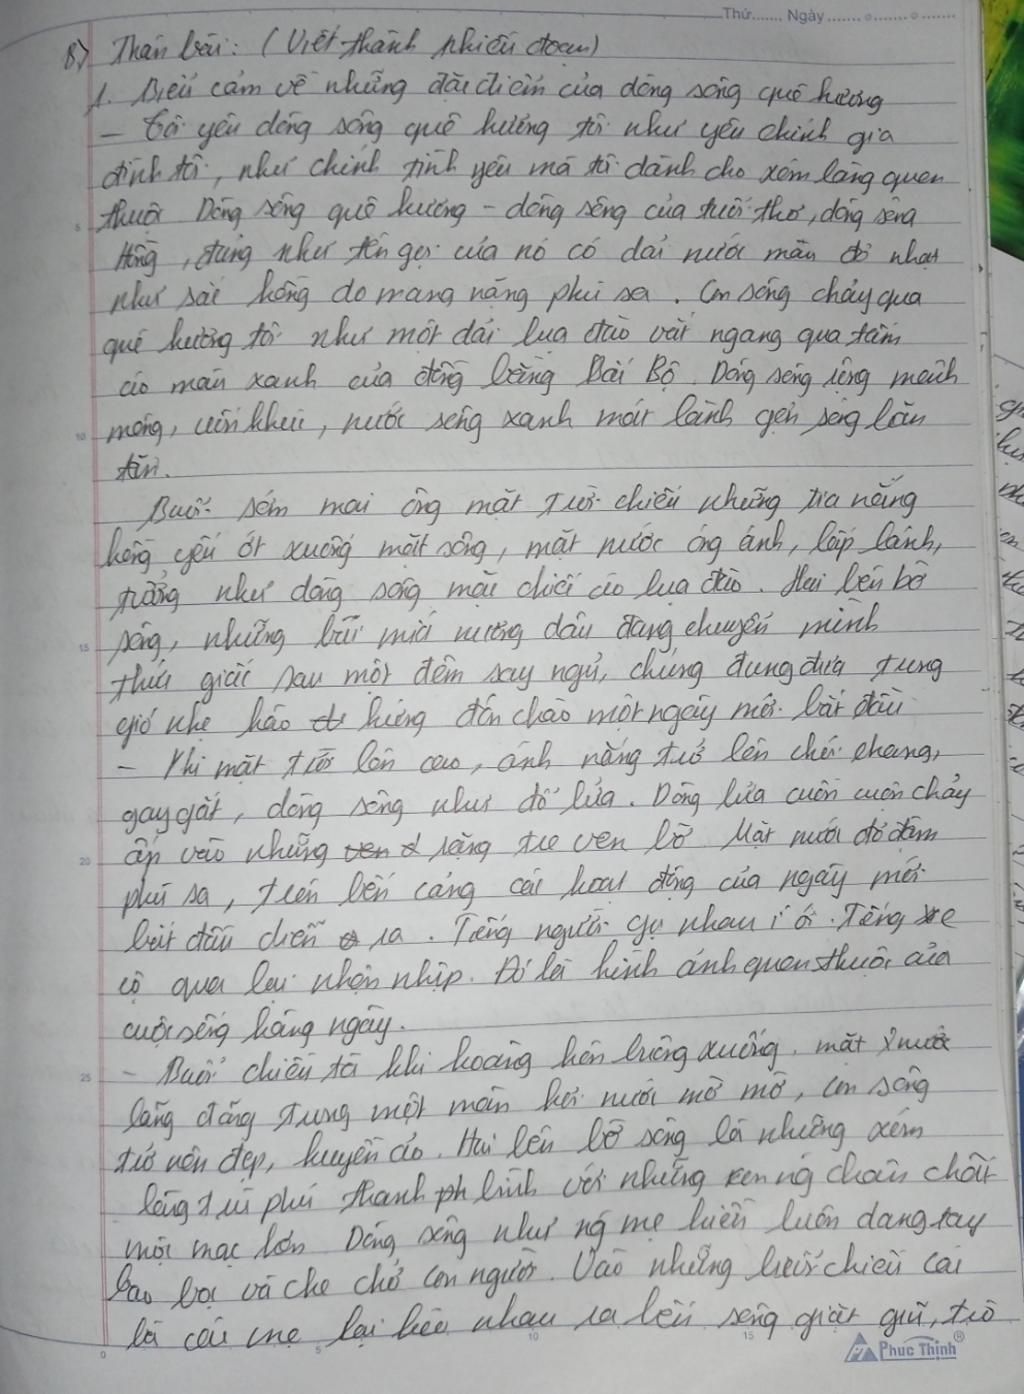 Thứ....... Ngày.............
B) Thân bài: (Viết thành nhiều đoạn)
1. Biểu cảm về những đặc điểm của dòng sông quê hương
– Tôi yêu dòng sông quê hương tôi như yêu chính gia
đình tôi, như chính tình yêu mà tôi dành cho xóm làng quen
thuộc Dòng sông quê hương – dòng sông của tuổi thơ, dòng sông
Hồng, đúng như tên gọi của nó có dải nước màu đỏ nhạt
như sắc hồng do mang nặng phù sa. Con sông chảy qua
quê hương tôi như một dải lụa đào vắt ngang qua tấm
áo màu xanh của đồng bằng Bắc Bộ. Dòng sông rộng mênh
mông, uốn khúc, nước sông xanh mát lành gợn sóng lăn
tăn.
Buổi sớm mai ông mặt trời chiếu những tia nắng
hồng yếu ớt xuống mặt sông, mặt nước óng ánh, lấp lánh,
tưởng như dòng sông mặc chiếc áo lụa đào. Hai bên bờ
sông, những bãi mía nương dâu đang chuyển mình
thức giấc sau một đêm say ngủ, chúng đung đưa trong
gió nhẹ háo hứng đón chào một ngày mới bắt đầu
– Khi mặt trời lên cao, ánh nắng trở lên chói chang,
gay gắt, dòng sông như đổ lửa. Dòng lửa cuồn cuộn chảy
ấp vào những rặng tre ven bờ. Mặt nước đỏ đậm
phù sa, trên bến cảng các hoạt động của ngày mới
bắt đầu diễn ra. Tiếng người gọi nhau í ới. Tiếng xe
cộ qua lại nhộn nhịp. Đó là hình ảnh quen thuộc của
cuộc sống hàng ngày.
– Buổi chiều tà khi hoàng hôn buông xuống. mặt nước
lãng đãng trong một màn hơi nước mờ mờ, con sông
trở nên đẹp, huyền ảo. Hai bên bờ sông là những xóm
làng trù phú thanh bình với những con ng chân chất
mộc mạc lớn Dòng sông như ng mẹ hiền luôn dang tay
bao bọc và che chở con người. Vào những buổi chiều các
bà các mẹ lại kéo nhau ra bến sông giặt giũ, trò
Phuc Thinh®